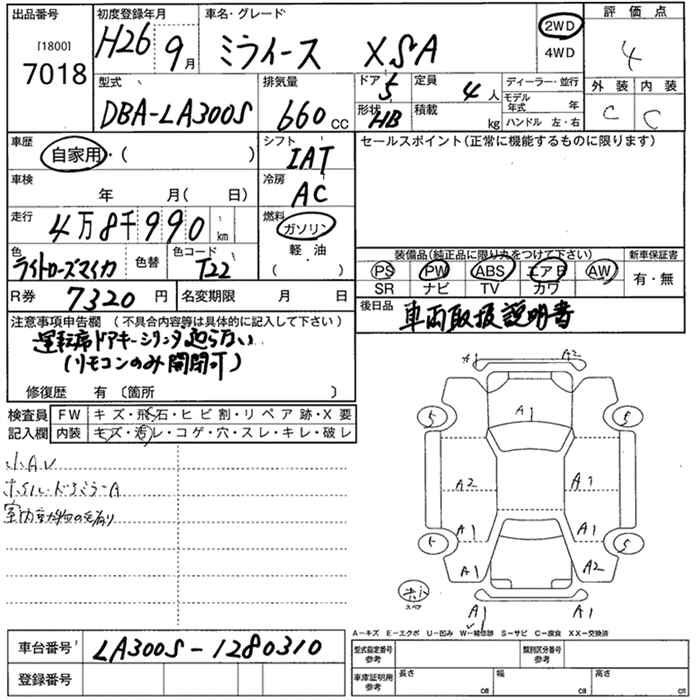 出品番号 初度登録年月 車名・グレード 評価点
[1800] 7018 H26 9月 ミライース XSA 2WD 4WD 4
型式 排気量 ドア 5 定員 4人 ディーラー・並行 外装 内装
DBA-LA300S 660CC 形状 HB 積載 kg モデル年式 年 C C
ハンドル 左・右
車歴 自家用・( ) シフト IAT セールスポイント(正常に機能するものに限ります)
車検 年 月( 日) 冷房 AC
走行 4万8千990km 燃料 ガソリン
軽・油
( ・ )
色 ライトローズマイカ 色替 色コード T22
装備品(純正品に限り丸をつけて下さい) 新車保証書
PS PW ABS エアB AW 有・無
SR ナビ TV カワ
R券 7320円 名変期限 月 日 後日品 車両取扱説明書
注意事項申告欄 (不具合内容等は具体的に記入して下さい)
運転席ドアキーシリンダ
(リモコンのみ開閉可)
修復歴 有 (箇所 )
検査員 FW キズ・飛石・ヒビ割・リペア跡・X要
記入欄 内装 キズ・汚レ・コゲ・穴・スレ・キレ・破レ
小AU
ホイル・ドアミラーA
A1 A2
A1
5 5
A2 A1
A1 A1
5 5
A1 A2
スペア
A1 A1
A-キズ E-エクボ U-凹み W-補修跡 S-サビ C-腐食 XX-交換済
車台番号 LA300S-1280310 型式指定番号 参考 類別区分番号 参考
登録番号 車庫証明用 参考 長さ cm 幅 cm 高さ cm